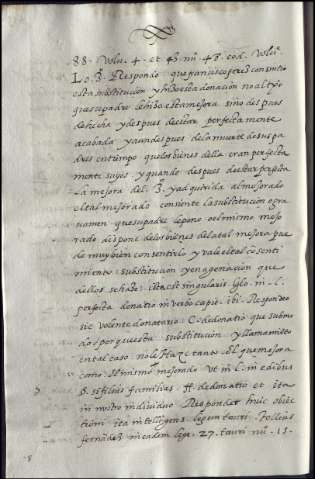 88. Volu. 4. et 43. nu. 48. cod. Volu.
Lo 3. Respondo que francisco perez consintio
esta substitucion y hizo esta donacion no al tpo
que su padre hizo esta mejora sino despues
de hecha y despues de estar perfectamente
acabada y aun despues de la muerte de sus pa
dres en tiempo que los bienes della eran perfecta
mente suyos y quando despues de estar perfecta
la mejora del 3. y adquirida al mejorado
el tal mejorado consiente la substitucion o gra
uamen que su padre le pone o el mismo mejo
rado dispone de los bienes de la tal mejora pue
de muy bien consentirlo y vale el tal consenti
miento substitucion y enagenacion que
dellos se habe. ita est singularis glo. in l.
perfecta donatio in verbo capie. ibi. Respondeo
sic volente donatario. C. de donatio que sub mo
do o por questa substitucion y llamamito
en tal caso no le haze tanto el que mejora
como el mismo mejorado Vt in l. in edibus
§. si filius familias. ff. de donatio et ita
in nostro individuo Responder huic obiec
tioni ita intelligens legem tauri. Tellus
fernandez in eadem lege. 27. tauri nu. 11.